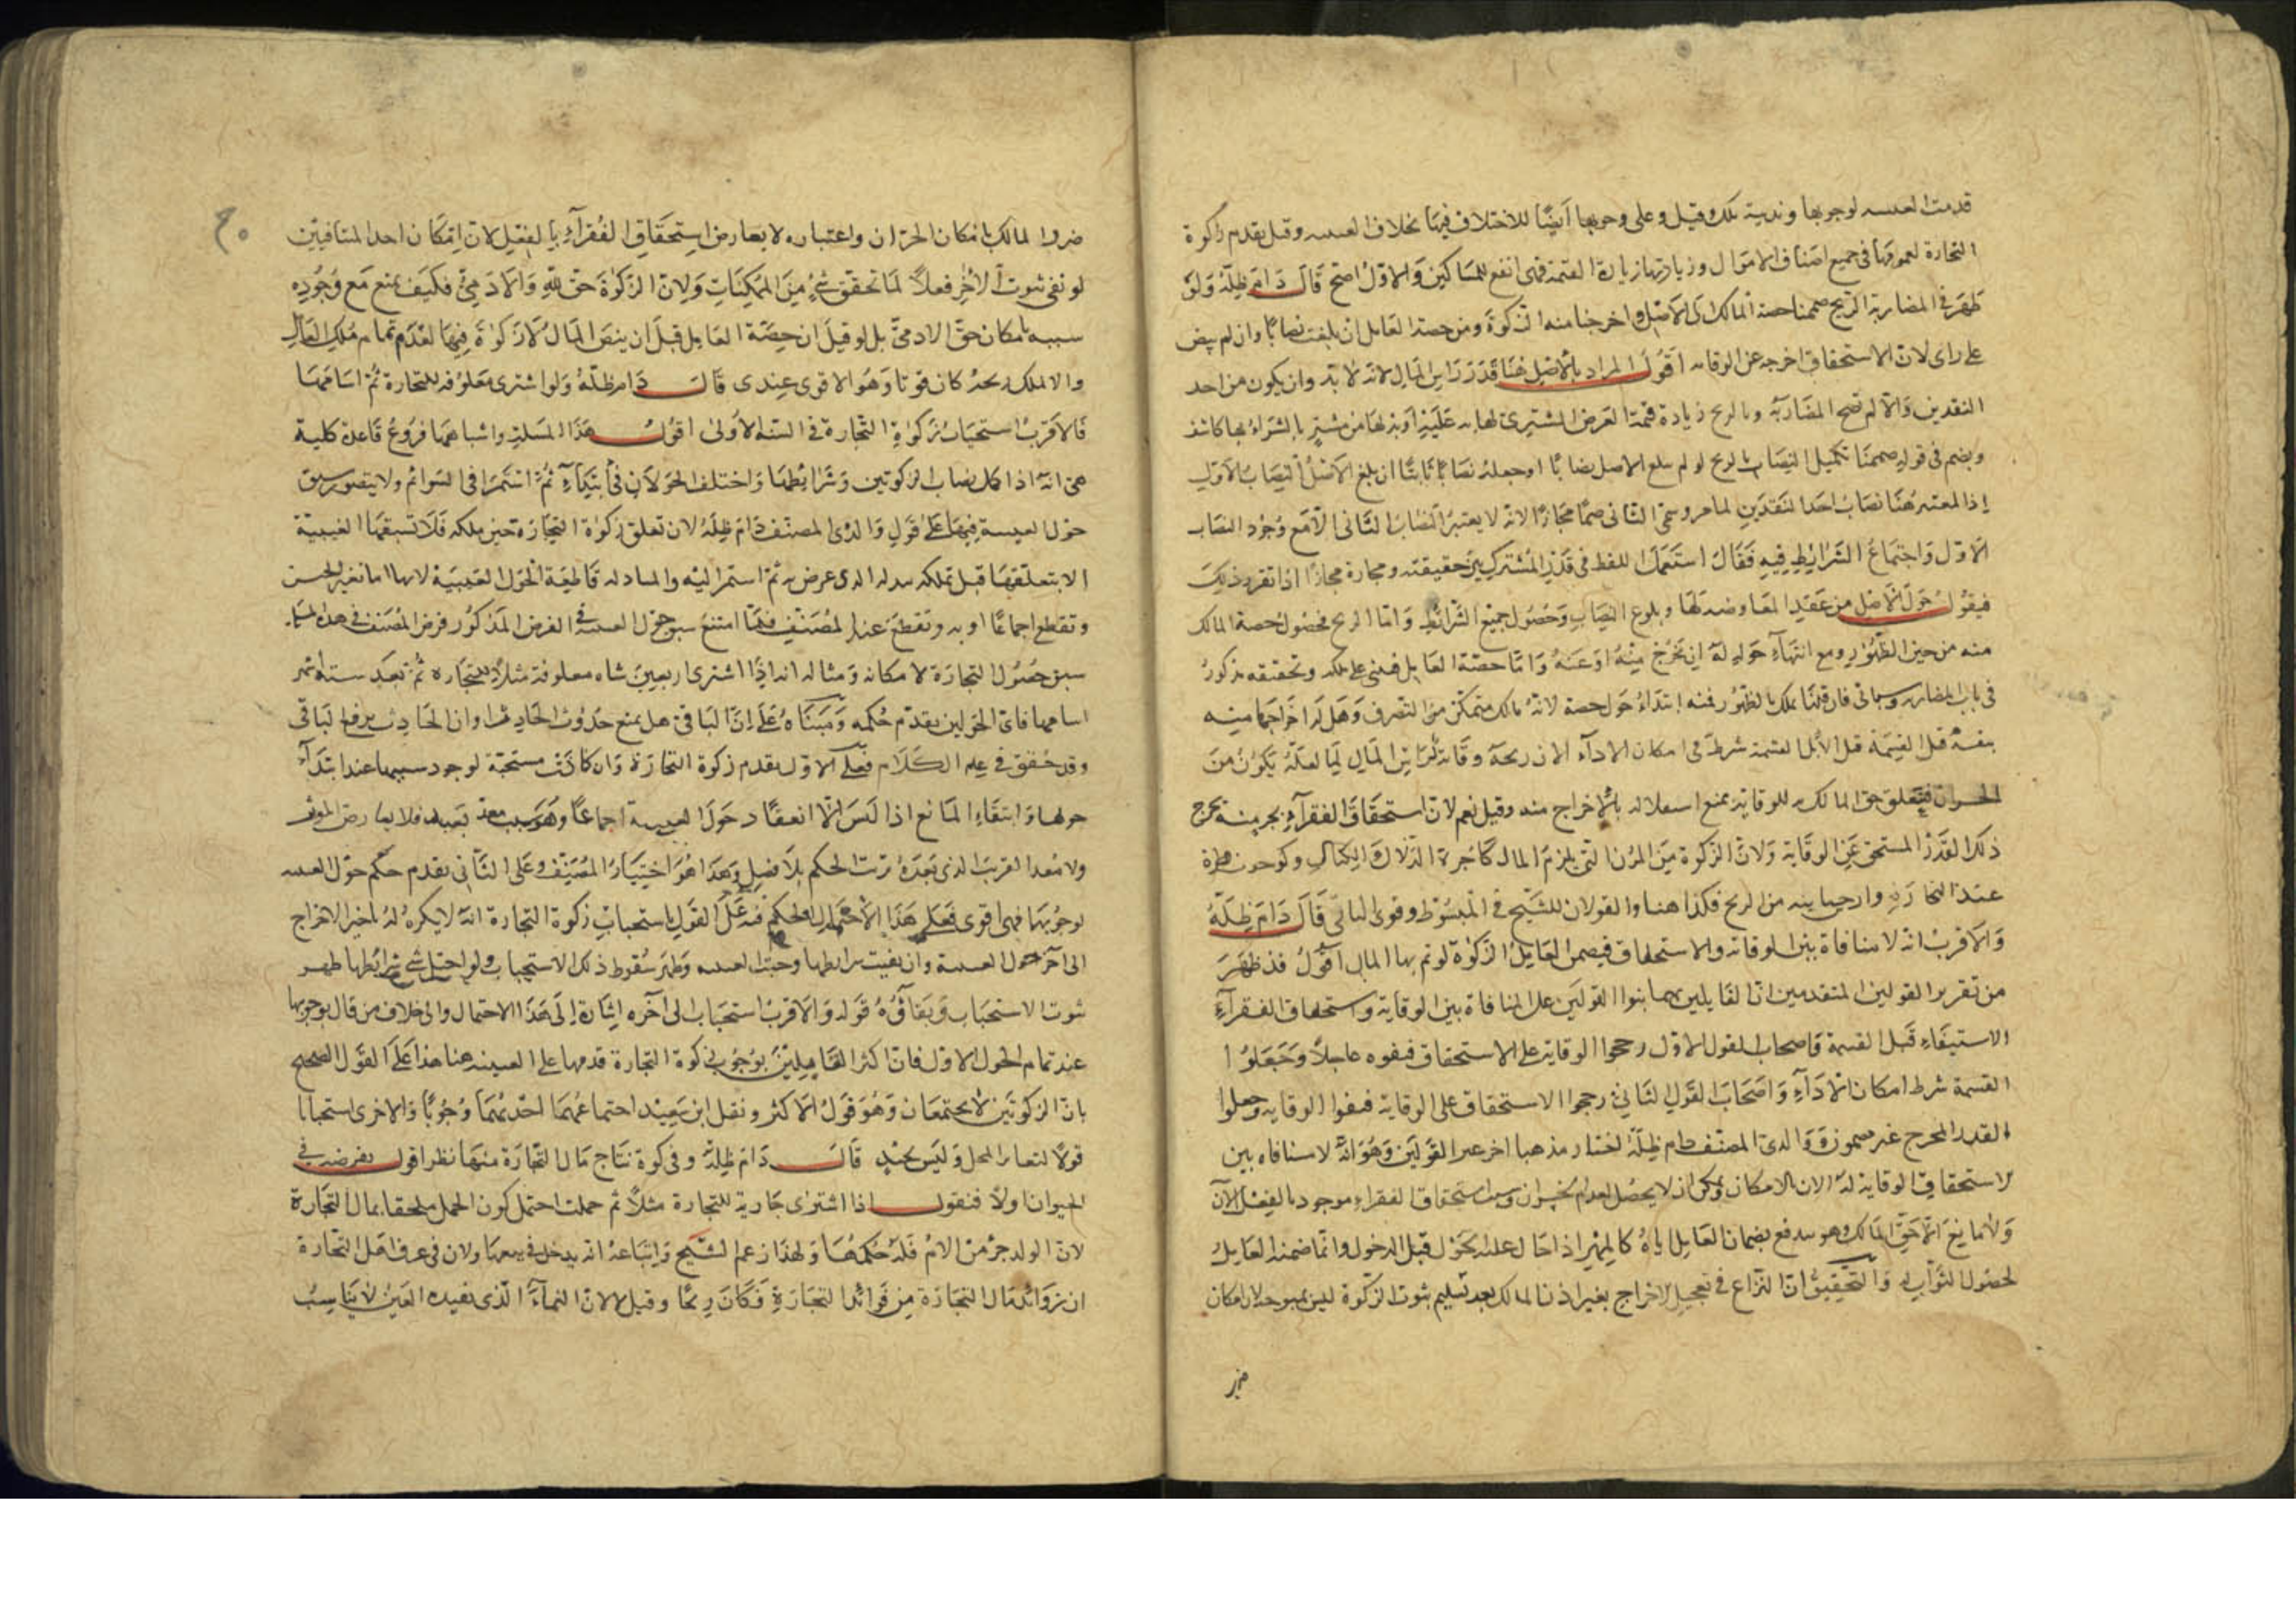 قدمت العينية لوجوبها وندبية تلك وقيل وعلى وجوبها أيضًا للاختلاف فيها بخلاف العينية وقيل بقدم زكوة
التجارة لعمومها في جميع اصناف الاموال وزيادتها زيادة القيمة فهى انفع للمساكين والاول اصح قال دام ظله ولو
ظهر في المضاربة الربح ضممنا حصة المالك الى الاصل واخرجنا منه الزكوة ومن حصة العامل ان بلغت نصابًا وان لم ينض
على راى لان الاستحقاق اخرجه عن الوقاية اقول المراد بالاصل هنا قدر راس المال لانه لا بد وان يكون من احد
النقدين والا لم تصح المضاربة وبالربح زيادة قيمة العرض المشترى لها به
ويضم في قوله ضممنا تكميل النصاب بالربح لو لم يبلغ الاصل نصابًا او جعله نصابًا ثانيًا ان بلغ الاصل النصاب الاول
إذا المعتبر هنا نصاب احد النقدين لما مر وسمى الثانى ضمًا مجازًا لانه لا يعتبر النصاب الثانى الا مع وجود النصاب
الاول واجتماع الشرايط فيه فقال استعمل اللفظ فى قدر المشترك بين حقيقته ومجازه مجازًا اذا تقرر ذلك
فيقول حول الاصل من عقد المعاوضة لها وبلوغ النصاب وحصول جميع الشرائط واما الربح فحصول حصة المالك
منه من حين الظهور ومع انتهاء حوله له ان يخرج منه او عنه واما حصة العامل فيبنى على ملكه وتحقيقه مذكور
فى باب المضاربة وسياتى فان قلنا يملك بالظهور فمنه ابتداء حول حصة لانه مالك متمكن من التصرف وهل له اخراجها منه
قبل القسمة قيل لا القسمة شرط فى امكان الاداء لان ربحه وقاية لراس المال لما لعله يكون من
الخسران فيتعلق حق المالك به للوقاية يمنع استقلاله بالاخراج منه وقيل نعم لان استحقاق الفقراء بجزئية يخرج
ذلك القدر المستحق عن الوقاية ولان الزكوة من المؤن التى تلزم المال كاجرة الدلال والكيال وكوجوب فطرة
عبد التجارة وارجى بينه من الربح فكذا هنا والقولان للشيخ فى المبسوط وقوى الثانى قال دام ظله
والاقرب انه لا منافاة بين الوقاية والاستحقاق فيضمن العامل الزكوة لو تم بها المال اقول قد ظهر
من تقرير القولين المتقدمين ان القايلين بهما بنوا القولين على المنافاة بين الوقاية واستحقاق الفقراء
الاستيفاء قبل القسمة فاصحاب القول الاول رجحوا الوقاية على الاستحقاق فنفوه عاجلًا وجعلوا
القسمة شرط امكان الاداء واصحاب القول الثانى رجحوا الاستحقاق على الوقاية فنفوا الوقاية وجعلوا
القدر المخرج غير مضمون ووالدى المصنف دام ظله اختار مذهبا اخر غير القولين وهو انه لا منافاه بين
استحقاق الوقاية له الان بالامكان ويمكن ان لا يحصل لعدم الخسران وبين استحقاق الفقراء موجود بالفعل الان
ولا مانع الا حق المالك وهو يندفع بضمان العامل اياه كالمهر اذا حال عليه الحول قبل الدخول وانما ضمنه العامل
لحصول الثواب له والتحقيق ان النزاع فى تعجيل الاخراج بغير اذن المالك بعد تسليم ثبوت الزكوة ليس بموجه لان امكان
ضر
ضرر المالك بامكان الخسران واعتباره لا يعارض استحقاق الفقراء بالفعل لان امكان احد المتنافيين
لو نفى ثبوت الاخر فعلًا لما تحقق شىء من الممكنات ولان الزكوة حق لله والادمى فكيف يمنع مع وجود
سببه بامكان حق الادمى بل لو قيل ان حصة العامل قبل ان ينض المال لا زكوة فيها لعدم تمام ملك العامل
والا لملك ربحه كان قويًا وهو الاقوى عندى قال دام ظله ولو اشترى معلوفه للتجارة ثم اسامها
فالاقرب استحباب زكوة التجارة فى السنة الاولى اقول هذه المسئلة واشباهها فروع قاعدة كلية
هى انه اذا كمل نصاب الزكوتين وشرائطهما واختلف الحولان فى ابتداء ثم استمرا فى السوائم ولا يتصور سبق
حول العينية فيها على قول والدى المصنف دام ظله لان تعلق زكوة التجارة حين ملكه فلا تسبقها العينية
الا بتعلقها قبل تملكه بدله الذى عرض به ثم استمر اليه والمبادلة قاطعة لحول العينية لانها اما بغير الجنس
وتقطع اجماعًا او به وتقطع عند المصنف فلما امتنع سبق حول العينية في الفرض المذكور فرض المصنف فى هذه المسئلة
سبق حول التجارة لامكانه ومثاله انه اذا اشترى اربعين شاه معلوفة مثلًا للتجارة ثم بعد ستة اشهر
اسامها فاى الحولين يقدم حكمه ومبناه على ان الباقى هل يمنع حدوث الحادث او ان الحادث يرفع الباقى
وقد حقق فى علم الكلام فعلى الاول يقدم زكوة التجارة وان كانت مستحبة لوجود سببها عند ابتداء
حولها وانتفاء المانع اذا ليس الا انعقاد حول العينية اجماعًا
ولا معد القريب الذى بعده ترتب الحكم بلا فصل وهذا هو اختيار المصنف وعلى الثانى يقدم حكم حول العينية
لوجوبها فهى اقوى فعلى هذا الاحتمال الحكم القول باستحباب زكوة التجارة انه لا يكره له تاخير الاخراج
الى آخر حول العينية وان بقيت شرايطها وجبت العينية وظهر سقوط ذلك الاستحباب ولو اختل شىء من شرائطها ظهر
ثبوت الاستحباب وبقاؤه قوله والاقرب استحباب الى آخره اشارة إلى هذا الاحتمال والى خلاف من قال بوجوبها
عند تمام الحول الاول فان اكثر القائلين بوجوب زكوة التجارة قدمها على العينية هنا هذا على القول الصحيح
بان الزكوتين لا يجتمعان وهو قول الاكثر ونقل ابن سعيد اجتماعهما احديهما وجوبًا والاخرى استحبابًا
قولًا لتغاير المحل وليس بجيد قال دام ظله وفى كون نتاج مال التجارة منها نظر اقول نفرضه في
الحيوان اولًا فنقول اذا اشترى جارية للتجارة مثلًا ثم حملت احتمل كون الحمل ملحقا بمال التجارة
لان الولد جزؤ من الام فله حكمها ولهذا زعم الشيخ واتباعه انه يدخل فى بيعها ولان فى عرف اهل التجارة
ان زوائد مال التجارة من فوائد التجارة فكان ربحًا وقيل لا لان النماء الذى يفيده العين لا يناسب